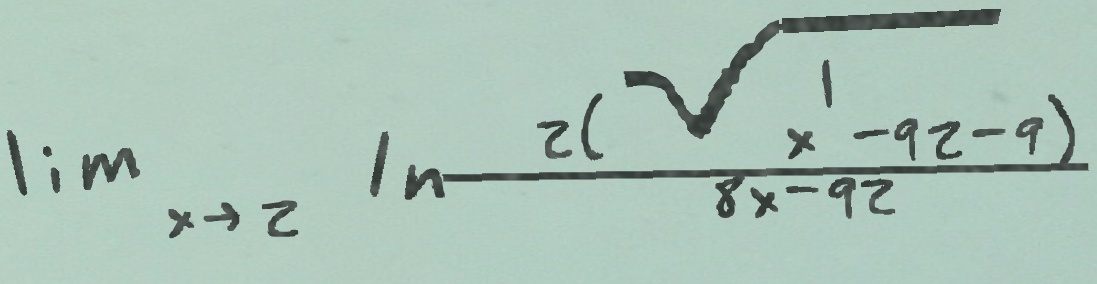 \lim_{x \to 2} \ln \frac{2(\sqrt{x^1 - 92 - 9})}{8x - 92}